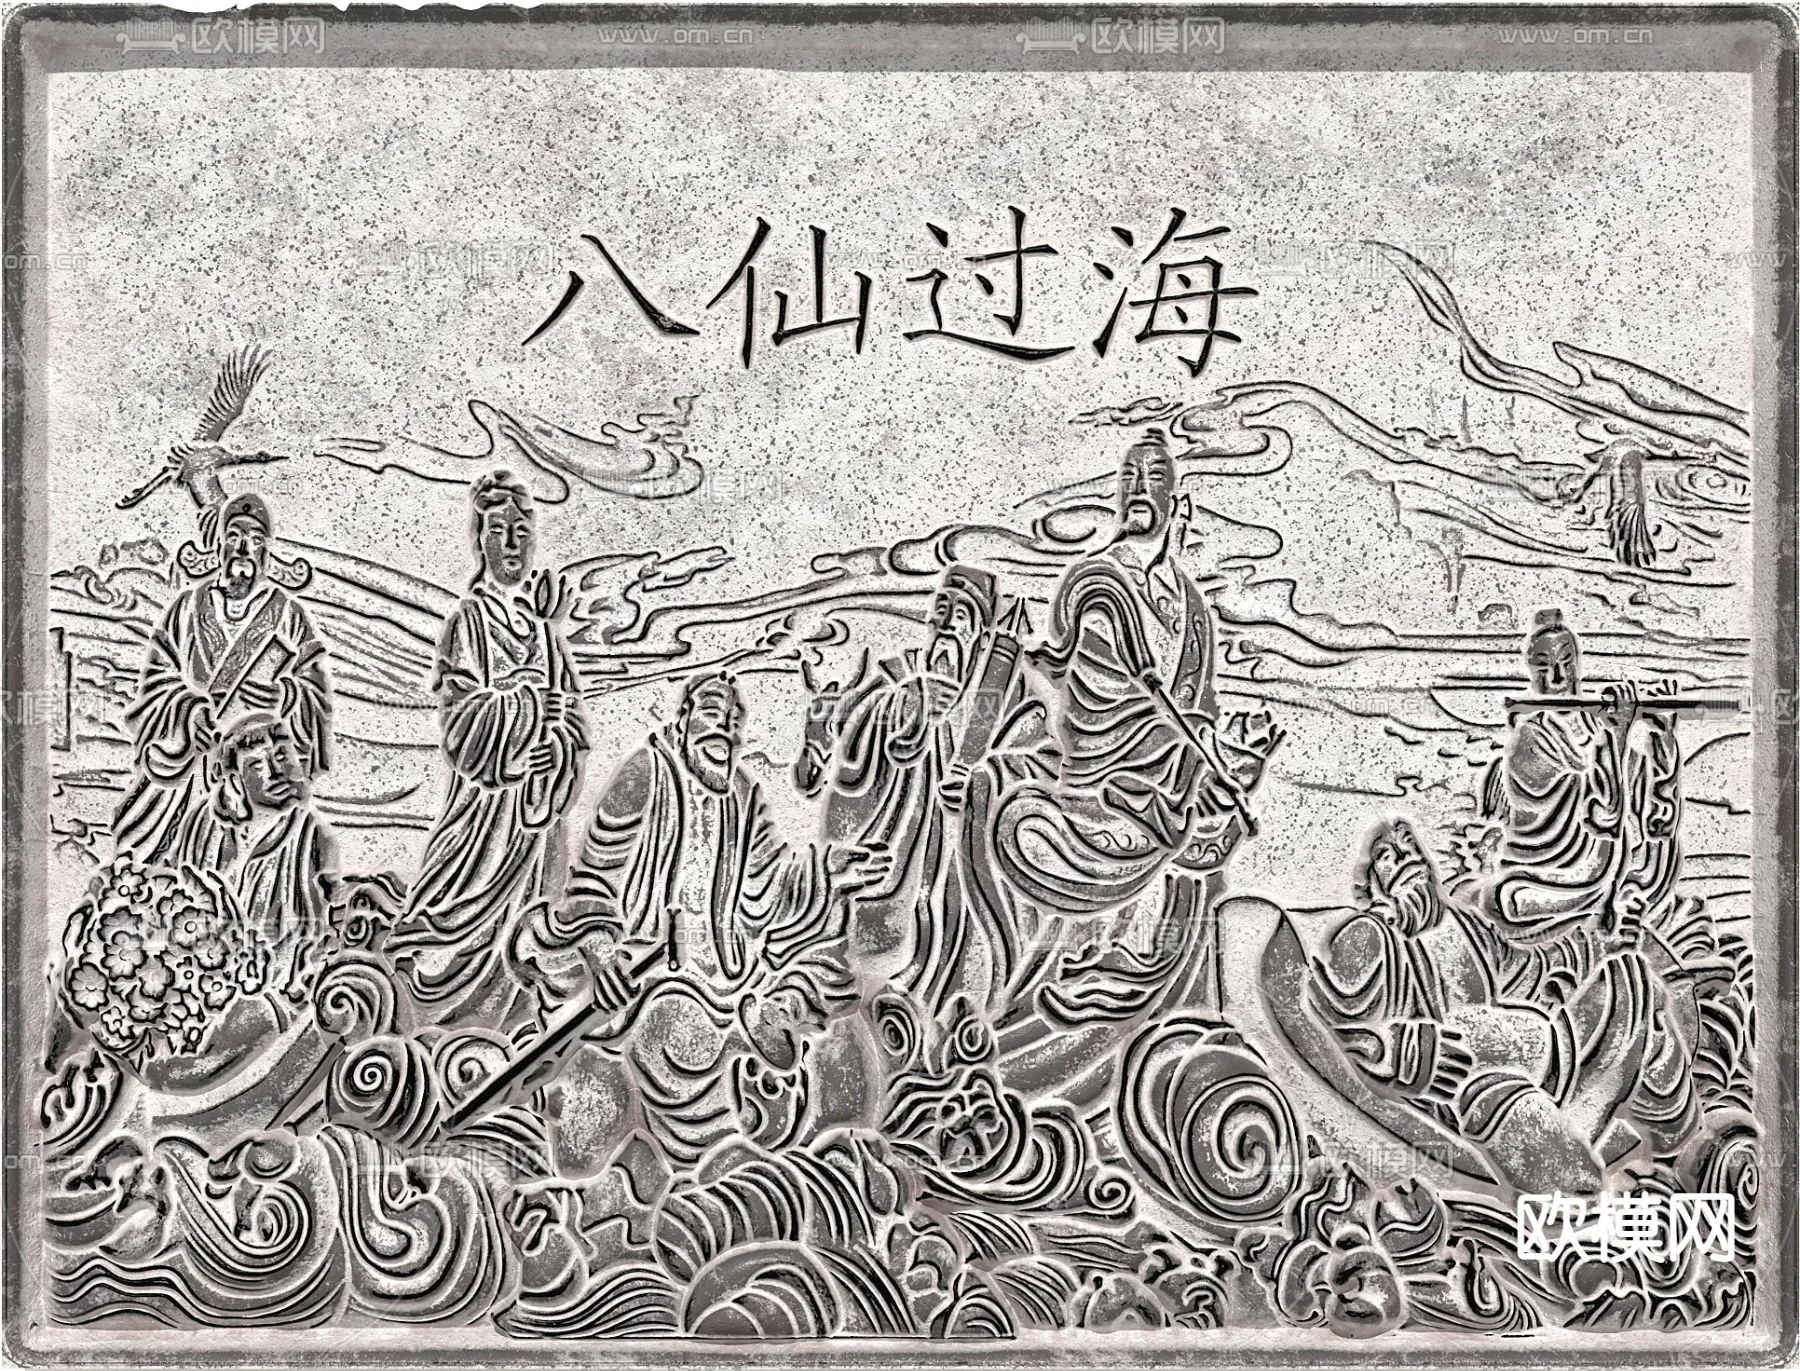 欧模网 www.om.cn 欧模网 www.om.cn
八仙过海
欧模网